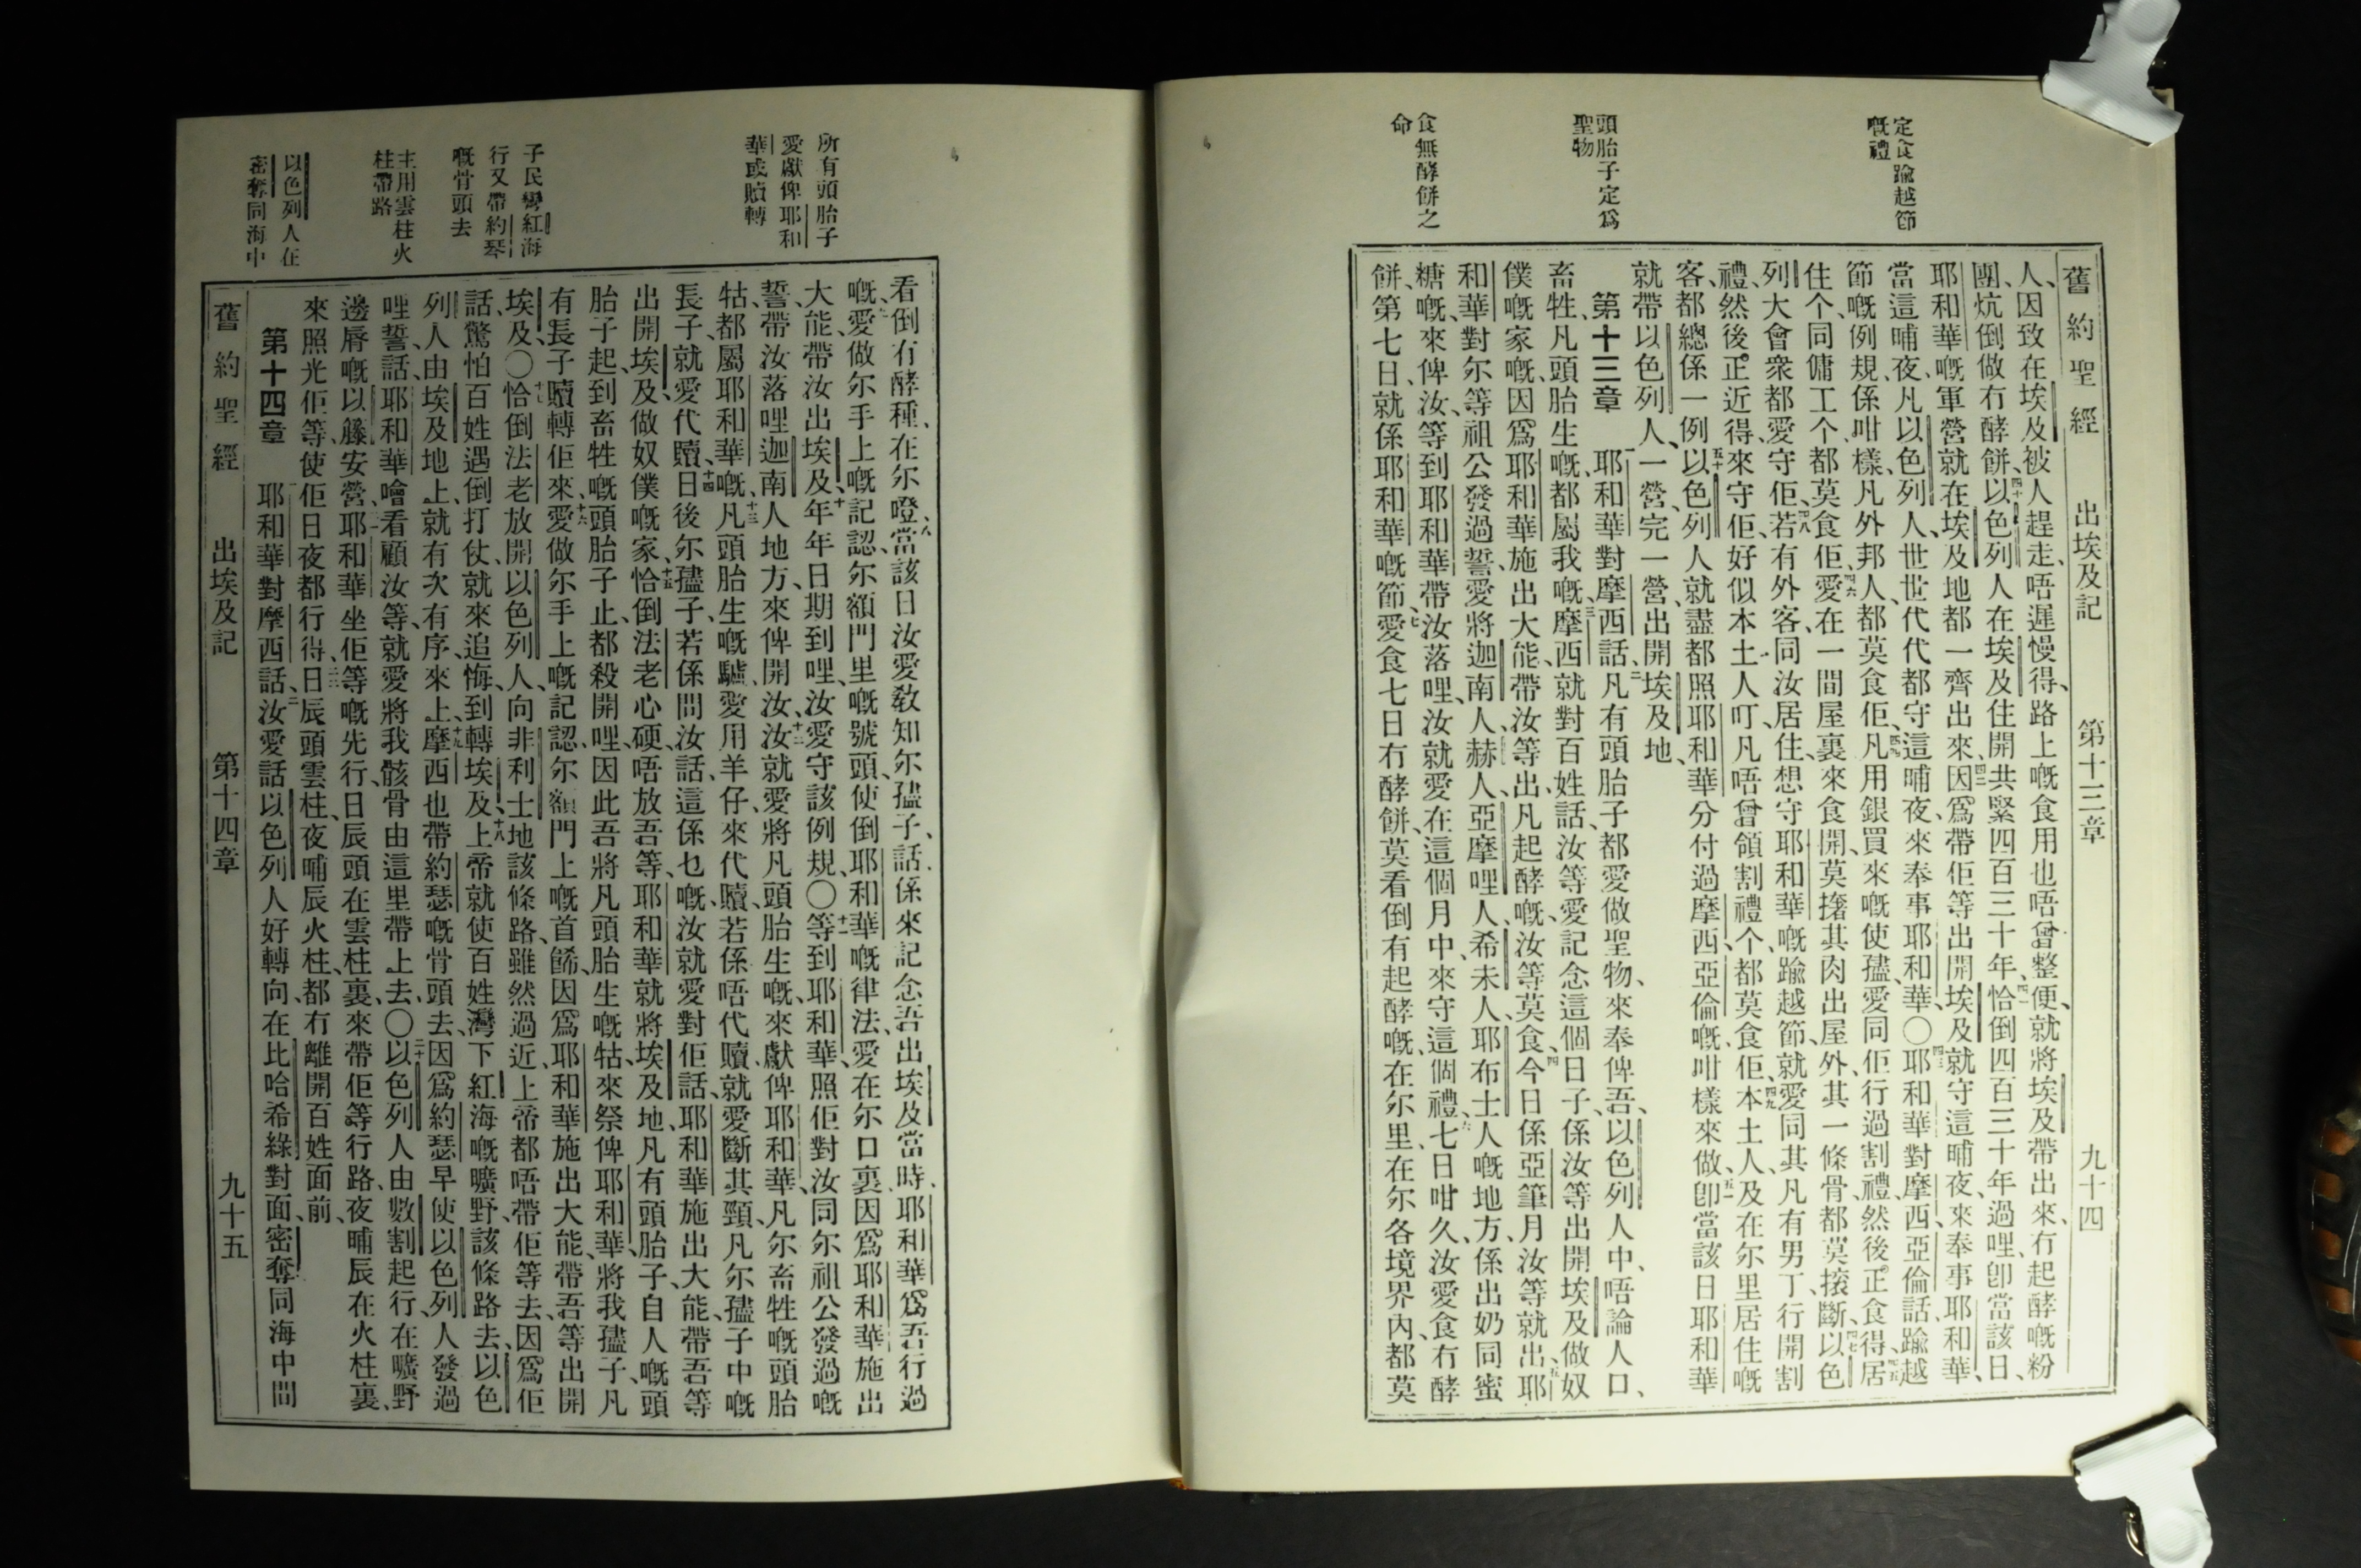 定食踰越節
嘅禮
頭胎子定爲
聖物
食無酵餅之
命
舊約聖經 出埃及記 第十三章 九十四
人、因致在埃及被人趕走、唔遲慢得、路上嘅食用也唔曾整便、就將埃及帶出來、冇起酵嘅粉
團、炕倒做冇酵餅、四十以色列人在埃及住開共緊四百三十年、四一恰倒四百三十年過哩、卽當該日、
耶和華嘅軍營就在埃及地都一齊出來、四二因爲帶佢等出開埃及、就守這晡夜、來奉事耶和華、
當這晡夜、凡以色列人世世代代都守這晡夜來奉事耶和華、〇四三耶和華對摩西亞倫話、踰越
節嘅例規、係咁樣、凡外邦人、都莫食佢、四四凡用銀買來嘅使孻、愛同佢行過割禮、然後正食得、四五居
住个、同傭工个、都莫食佢、四六愛在一間屋裏來食開、莫撦其肉出屋外、其一條骨都莫㨰斷、四七以色
列大會衆都愛守佢、四八若有外客、同汝居住、想守耶和華嘅踰越節、就愛同其凡有男丁行開割
禮、然後正近得、來守佢、好似本土人叮、凡唔曾領割禮个、都莫食佢、四九本土人、及在尔里居住嘅
客、都總係一例、五十以色列人就盡都照耶和華分付過摩西、亞倫嘅咁樣來做、五一卽當該日耶和華
就帶以色列人、一營完一營、出開埃及地、
第十三章 一耶和華對摩西話、二凡有頭胎子、都愛做聖物、來奉俾吾、以色列人中、唔論人口、
畜牲、凡頭胎生嘅、都屬我嘅、三摩西就對百姓話、汝等愛記念這個日子、係汝等出開埃及做奴
僕嘅家嘅、因爲耶和華施出大能、帶汝等出、凡起酵嘅、汝等莫食、四今日係亞筆月汝等就出、五耶
和華對尔等祖公發過誓、愛將迦南人、赫人、亞摩哩人、希未人、耶布士人嘅地方、係出奶同蜜
糖嘅、來俾汝、等到耶和華帶汝落哩、汝就愛在這個月中、來守這個禮、六七日咁久、汝愛食冇酵
餅、第七日、就係耶和華嘅節、七愛食七日冇酵餅、莫看倒有起酵嘅、在尔里、在尔各境界內、都莫
所有頭胎子
愛獻俾耶和
華或贖轉
子民彎紅海
行又帶約琴
嘅骨頭去
主用雲柱火
柱帶路
以色列人在
密奪同海中
看倒有酵種、在尔噔、八當該日汝愛敎知尔孻子、話係來記念吾出埃及當時、耶和華爲吾行過
嘅、九愛做尔手上嘅記認、尔額門里嘅號頭、使倒耶和華嘅律法、愛在尔口裏、因爲耶和華施出
大能、帶汝出埃及、十年年日期到哩、汝愛守該例規、〇十一等到耶和華照佢對汝同尔祖公發過嘅
誓、帶汝落哩迦南人地方、來俾開汝、十二汝就愛將凡頭胎生嘅、來獻俾耶和華、凡尔畜牲嘅頭胎
牯、都屬耶和華嘅、十三凡頭胎生嘅驢、愛用羊仔、來代贖、若係唔代贖、就愛斷其頸、凡尔孻子中嘅
長子、就愛代贖、十四日後尔孻子、若係問汝話、這係乜嘅、汝就愛對佢話、耶和華施出大能、帶吾等
出開埃及、做奴僕嘅家、十五恰倒法老心硬、唔放吾等、耶和華就將埃及地、凡有頭胎子、自人嘅頭
胎子起、到畜牲嘅頭胎子止、都殺開哩、因此吾將凡頭胎生嘅牯、來祭俾耶和華、將我孻子、凡
有長子、贖轉佢來、十六愛做尔手上嘅記認、尔額門上嘅首飾、因爲耶和華施出大能、帶吾等出開
埃及、〇十七恰倒法老放開以色列人、向非利士地該條路、雖然過近、上帝都唔帶佢等去、因爲佢
話、驚怕百姓遇倒打仗、就來追悔、到轉埃及、十八上帝就使百姓灣下紅海嘅曠野、該條路去、以色
列人由埃及地上、就有次有序、來上、十九摩西也帶約瑟嘅骨頭去、因爲約瑟早使以色列人發過
哩誓、話、耶和華噲看顧汝等、就愛將我骸骨由這里帶上去、〇二十以色列人由數割起行、在曠野
邊脣嘅以籐、安營、二一耶和華坐佢等嘅先行、日辰頭在雲柱裏、來帶佢等行路、夜晡辰在火柱裏、
來照光佢等、使佢日夜都行得、二二日辰頭雲柱、夜晡辰火柱、都冇離開百姓面前、
第十四章 一耶和華對摩西話、二汝愛話以色列人好轉向、在比哈希綠對面、密奪同海中間
舊約聖經 出埃及記 第十四章 九十五